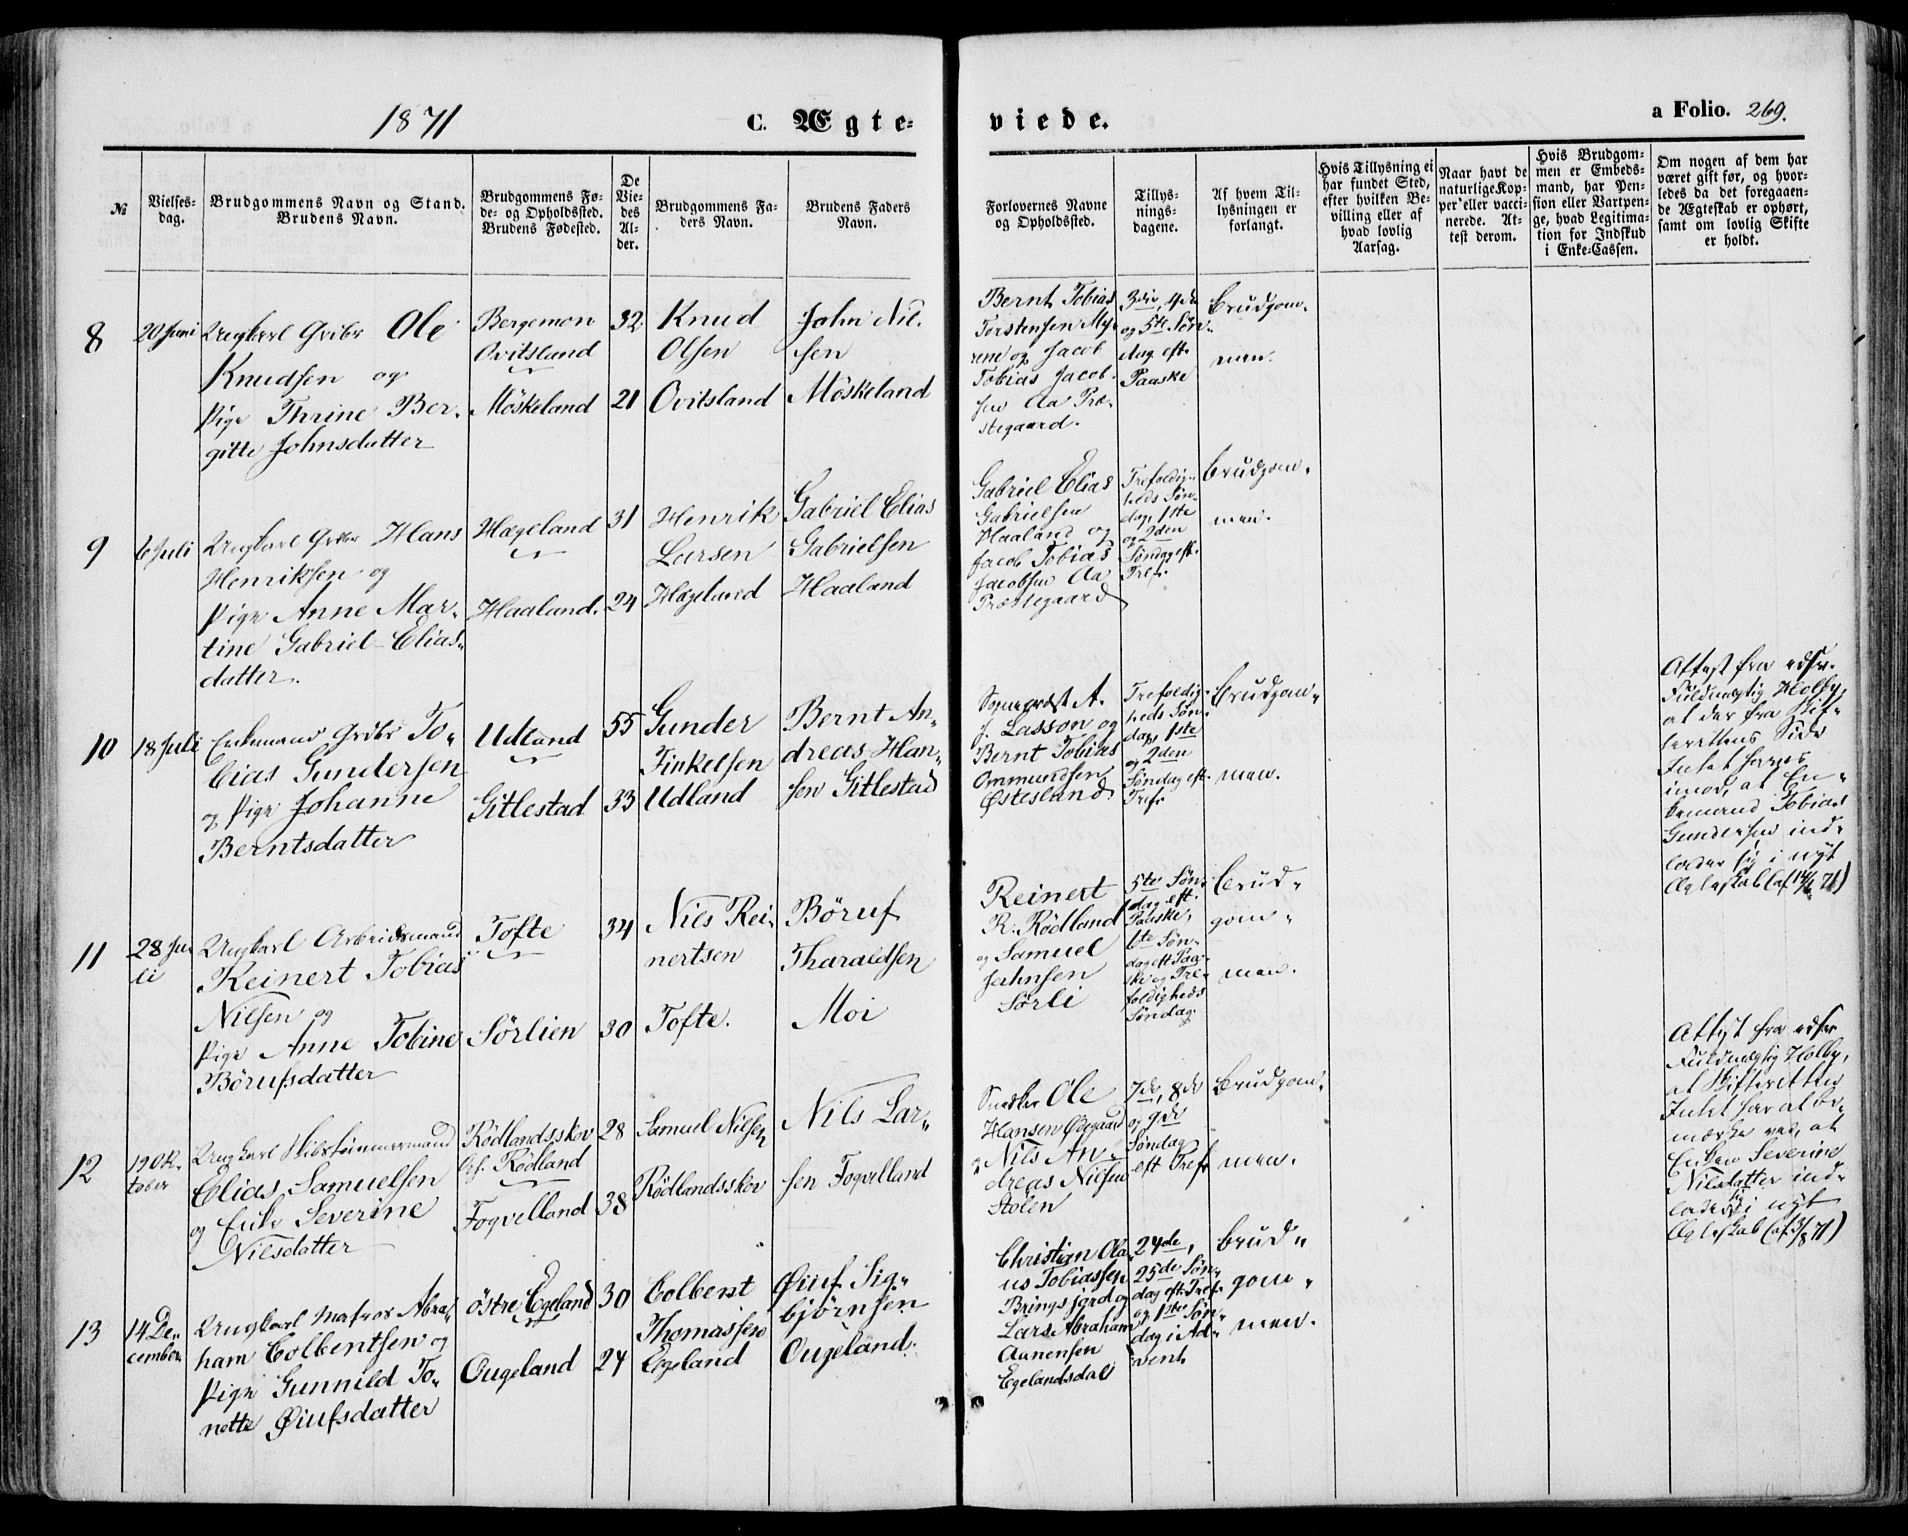 1871
C. Ægte-
viede.
a Folio. 269.
№
Vielses-
dag.
Brudgommens Navn og Stand.
Brudens Navn.
Brudgommens Fø-
de- og Opholdssted.
Brudens Fødested.
De
Vie-
des
Al-
der.
Brudgommens Fa-
ders Navn.
Brudens Faders
Navn.
Forlovernes Navne
og Opholdssted.
Tillys-
nings-
dagene.
Af hvem Til-
lysningen er
forlangt.
Hvis Tillysning ei
har fundet Sted,
efter hvilken Be-
villing eller af
hvad lovlig
Aarsag.
Naar havt de
naturlige Kop-
per eller vacci-
nerede. At-
test derom.
Hvis Brudgom-
men er Embeds-
mand, har Pen-
sion eller Vartpen-
ge, hvad Legitima-
tion for Indskud
i Enke-Cassen.
Om nogen af dem har
været gift før, og hvor-
ledes da det foregaaen-
de Ægteskab er ophørt,
samt om lovlig Skifte
er holdt.
8
20 Juni
Ungkarl Grdbr Ole
Knudsen og
Pige Thrine Ber-
gitte Johnsdatter
Bergemon
Ovitsland
Möskeland
32
21
Knud
Olsen
Ovitsland
John Nil-
sen
Möskeland
Bernt Tobias
Torstensen My-
rene og Jacob
Tobias Jacob-
sen Aa Præ-
stegaard.
3die, 4de
og 5te Søn-
dag eft.
Paaske
Brudgom-
men.
9
6 Juli
Ungkarl Grdbr Hans
Henriksen og
Pige Anne Mar-
tine Gabriel-Elias-
datter.
Hægeland
Haaland.
31
24
Henrik
Larsen
Hægeland
Gabriel Elias
Gabrielsen
Haaland
Gabriel Elias
Gabrielsen
Haaland og
Jacob Tobias
Jacobsen Aa
Præstegaard
Trefoldig-
heds Søn-
dag, 1ste
og 2den
Søndag eft.
Tref.
Brudgom-
men.
10
18 Juli
Enkemand Grdbr To-
bias Gundersen
og Pige Johanne
Berntsdatter
Udland
Gitlestad
55
33
Gunder
Finkelsen
Udland
Bernt An-
dreas Han-
sen Gitlestad
Sognepræst A.
J. Lasson og
Bernt Tobias
Ommundsen
Østesland
Trefoldig-
heds Søn-
dag, 1ste
og 2den
Søndag eft.
Tref.
Brudgom-
men.
Attest fra edsv.
Fuldmægtig Holby,
at der fra Skif-
terettens Side
Intet haves
imod, at En-
kemand Tobias
Gundersen ind-
lader sig i nyt
Ægteskab (af 14/6 71)
11
28 Ju-
li
Ungkarl Arbeidsmand
Reinert Tobias
Nilsen og
Pige Anne Tobine
Börufsdatter
Tofte
Sörlien
34
30
Nils Rei-
nertsen
Tofte.
Böruf
Tharaldsen
Moi
Reinert
R. Rødland
og Samuel
Jahnsen
Sørli
5te Søn-
dag eft.
Paaske,
6te Søn-
dag eft Paa-
ske og Tre-
foldigheds
Søndag.
Brud-
gom-
men.
12
19 Ok-
tober
Ungkarl Skibstømmermand
Elias Samuelsen
og Enke Severine
Nilsdatter
Rödlandsskov
Rødland
Fogvelland
28
38
Samuel Nilsen
Rödlandsskov
Nils Lar-
sen Foqvelland
Snedker Ole
Hansen Ødegaard
og Nils An-
dreas Nilsen
Stølen
7de, 8de
og 9de
Søndag
eft Tref
Brudgom-
men.
Attest fra edsv
Fuldmægtig Holby,
at Skifteretten
Intet har at be-
mærke ved, at
Enken Severine
Nilsdatter ind-
lader sig i nyt
Ægteskab (af 3/8 71)
13
14 De-
cember
Ungkarl Matros Abra-
ham Colbentsen og
Pige Gunnild To-
nette Øiufsdatter
östre Egeland
Ougeland
30
24
Colbent
Thomassen
Egeland
Øiuf Sig-
bjørnsen
Ougeland.
Christian Ola-
us Tobiassen
Bringsjord og
Lars Abraham
Aanensen
Egelandsdal
24de,
25de Søn-
dag eft. Tref.
og 1ste Søn-
dag i Ad-
vent
Brud-
gom-
men.